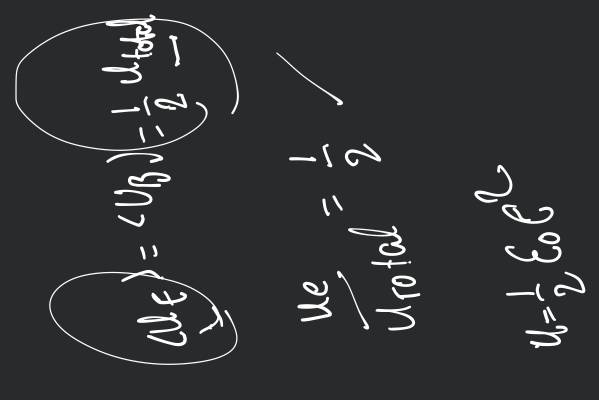 ⟨u_E⟩ = ⟨U_B⟩ = 1/2 u_total
u_e / u_Total = 1/2
u = 1/2 ε₀ E²